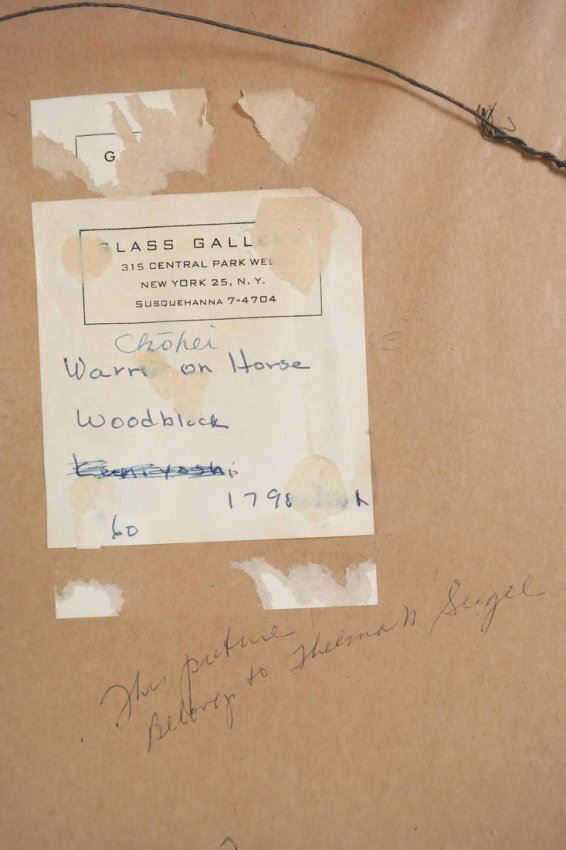 G
LASS GALLE
315 CENTRAL PARK WES
NEW YORK 25, N. Y.
SUSQUEHANNA 7-4704
Chōhei
Warri on Horse
Woodblock
Kuniyoshi
1798
60
This picture
Belongs to Thelma N